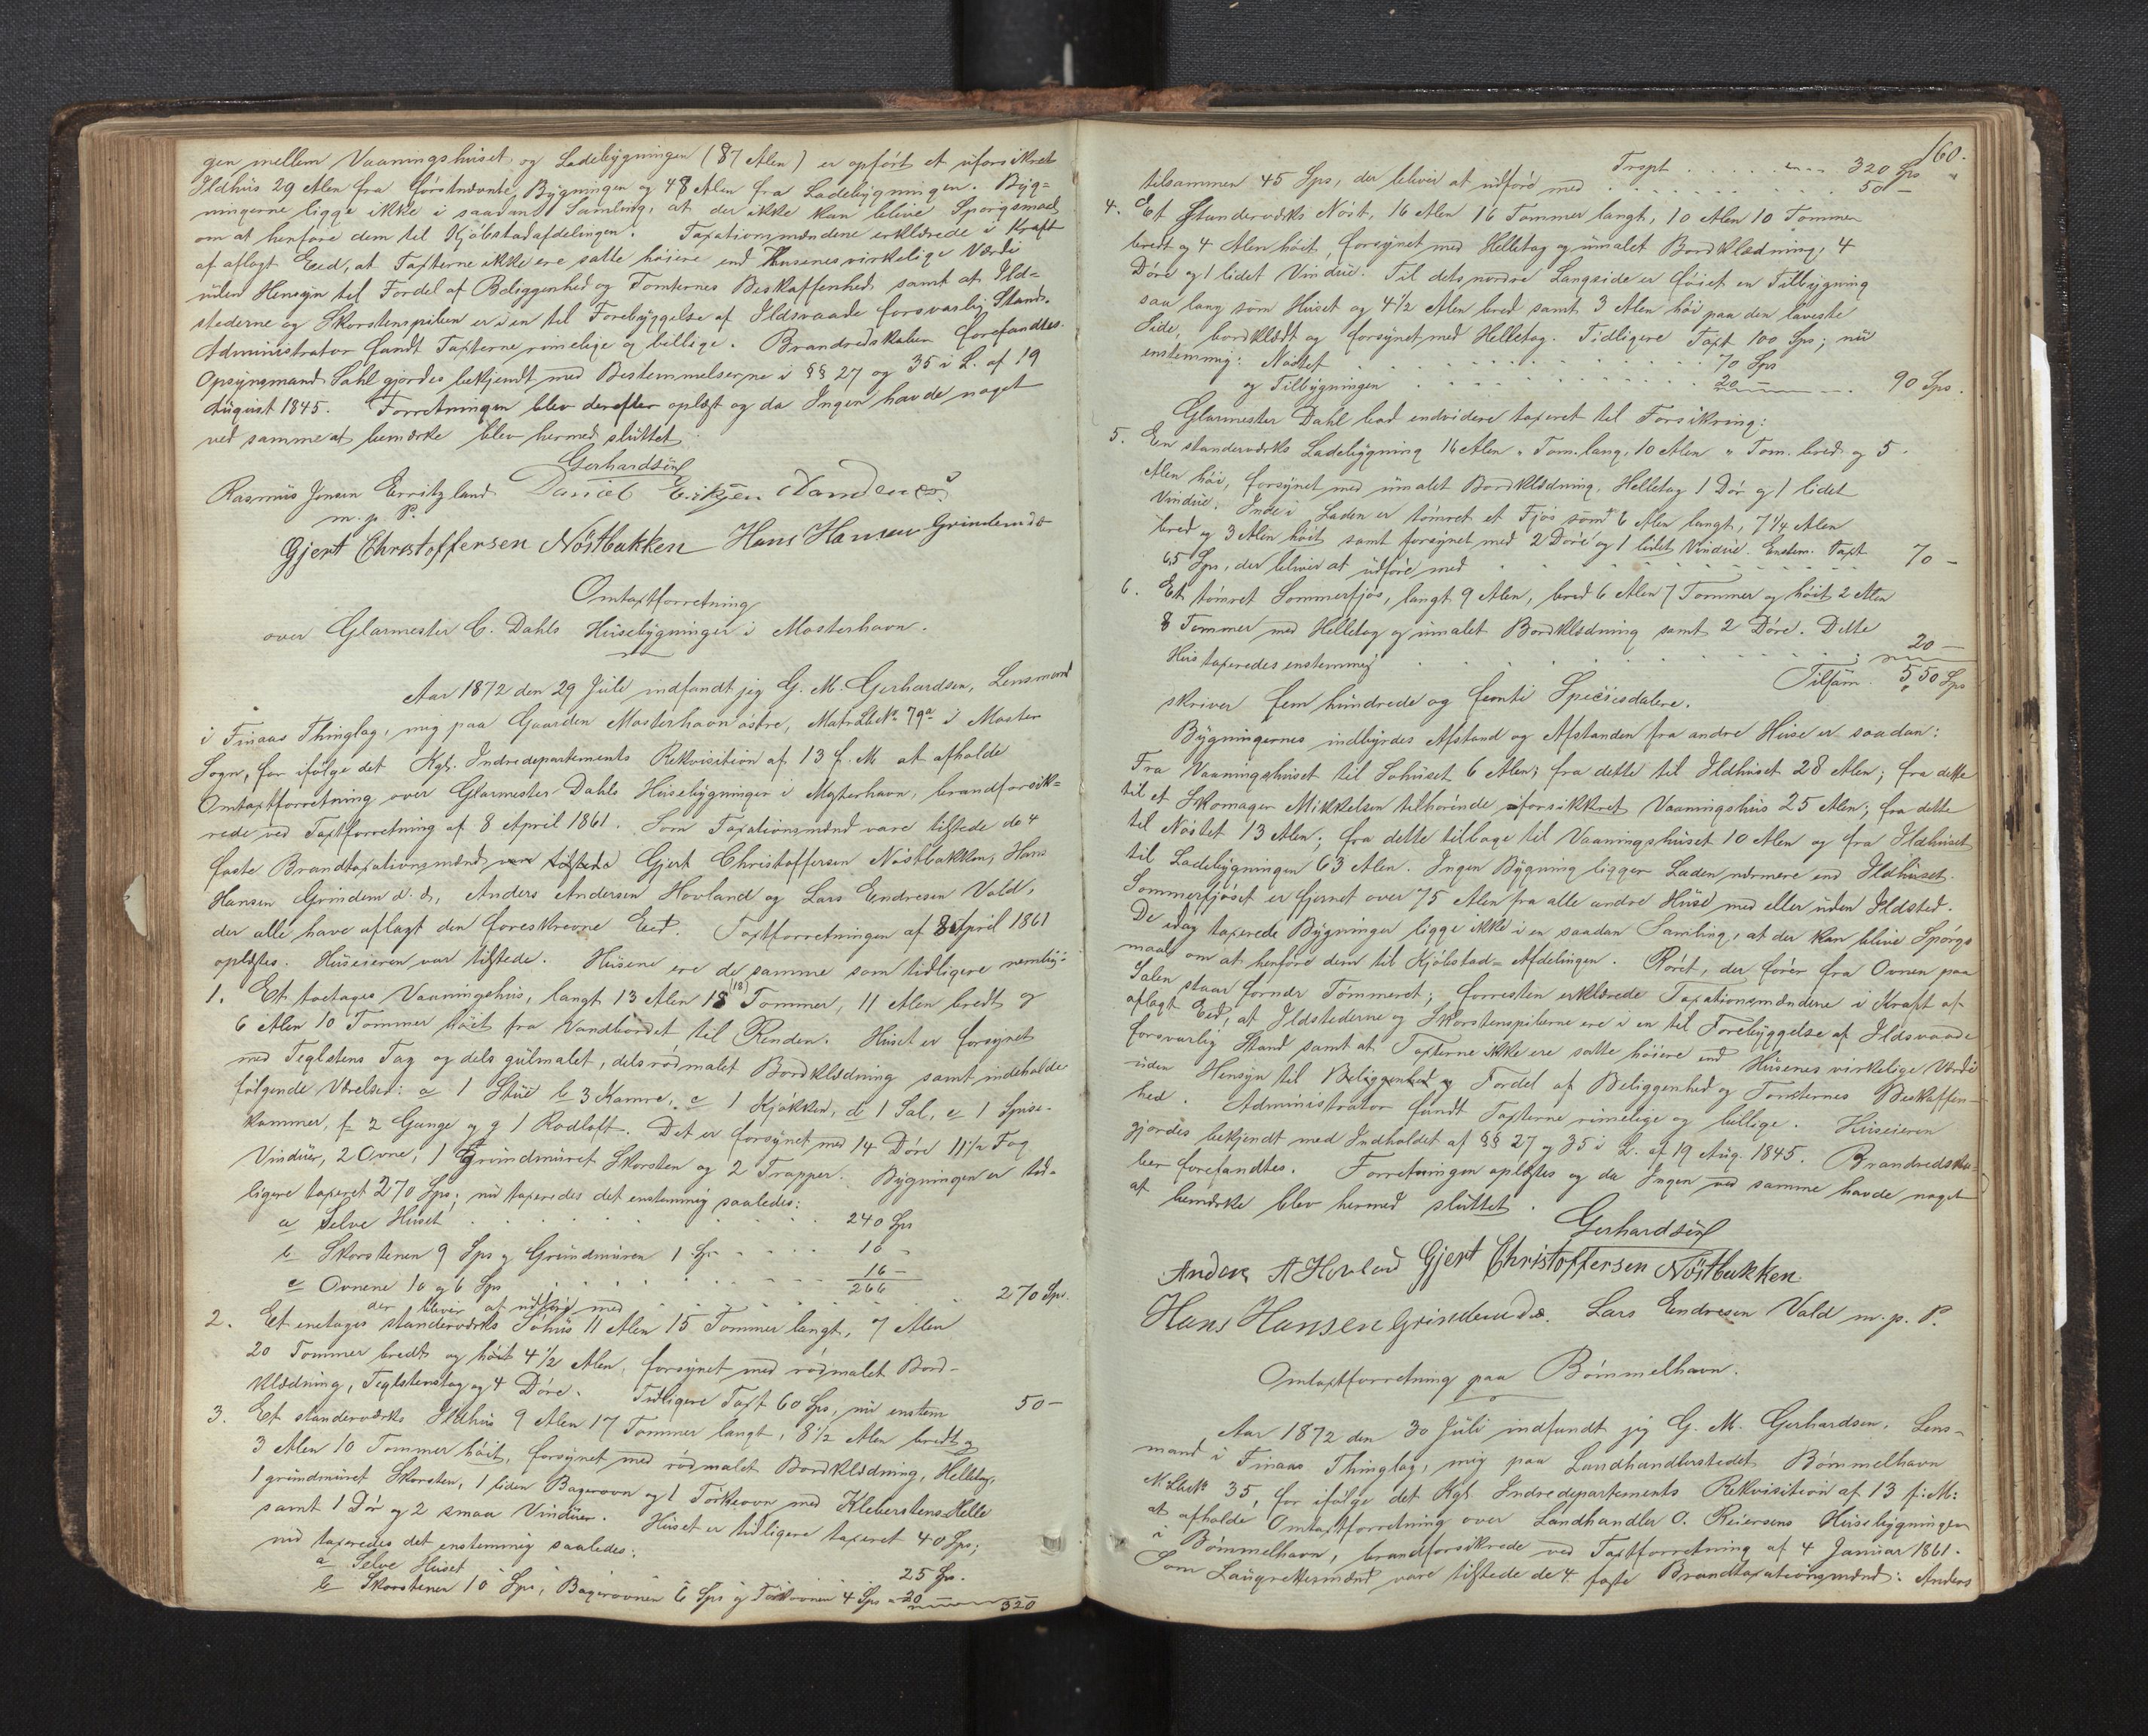 gen mellem Vaaningshuset og Ladebygningen (87 Alen) er opført et uforsikret
Ildhus 29 Alen fra førstnævnte Bygningen og 48 Alen fra Ladebygningen. Byg-
ningerne ligge ikke i saadan Samling, at der ikke kan blive Spørgsmaal
om at henføre dem til Kjøbstadafdelingen. Taxationsmændene erklærede i Kraft
af aflagt Eed, at Taxterne ikke ere satte høiere end Husenes virkelige Værdi
uden Hensyn til Fordel af Beliggenhed og Tomternes Beskaffenhed samt at Ild-
stederne og Skorstenspiben er i en til Forebyggelse af Ildsvaade forsvarlig Stand.
Administrator fandt Taxterne rimelige og billige. Brandredskaber forefandtes.
Opsynsmand Dahl gjordes bekjendt med Bestemmelserne i §§ 27 og 35 i L. af 19
August 1845. Forretningen blev derefter oplæst og da Ingen havde noget
ved samme at bemærke blev hermed sluttet.
Gerhardsen
Rasmus Jensen Erritzland Daniel Eriksen
m. p. P.
Gjert Christoffersen Nøstbakken Hans Hansen Grindem d. æ
Omtaxtforretning
over Glarmester C. Dahls Husebygninger i Mosterhavn.
Aar 1872 den 29 Juli indfandt jeg G. M. Gerhardsen, Lensmand
i Finaas Thinglag, mig paa Gaarden Mosterhavn østre, Matr. Lbr. No 79a i Moster
Sogn, for ifølge det Kgl. Indredepartements Rekvisition af 13 f. M. at afholde
Omtaxtforretning over Glarmester Dahls Husebygninger i Mosterhavn, brandforsik-
rede ved Taxtforretning af 8 April 1861. Som Taxationsmænd vare tilstede de 4
faste Brandtaxationsmænd vare tilstede Gjert Christoffersen Nøstbakken, Hans
Hansen Grindem d. æ, Anders Andersen Hovland og Lars Endresen Vald,
der alle have aflagt den foreskrevne Eed. Taxtforretningen af 8 April 1861
oplæstes. Huseieren var tilstede. Husene ere de samme som tidligere nemlig:
1. Et toetages Vaaningshus, langt 13 Alen 18 (18) Tommer, 11 Alen bredt og
6 Alen 10 Tommer høit fra Vandbordet til Renden. Huset er forsynet
med Teglstens Tag og dels gulmalet, dels rødmalet Bordklædning samt indeholde
følgende Værelser: a 1 Stue b 3 Kamre, c 1 Kjøkken, d 1 Sal, e 1 Spise-
kammer, f 2 Gange og g 1 Rodloft. Det er forsynet med 14 Døre 11½ Fag
Vinduer, 2 Ovne, 1 Grundmuret Skorsten og 2 Trapper. Bygningen er tid-
ligere taxeret 270 Spd; nu taxeredes det enstemmig saaledes:
a Selve Huset . . . 240 Spd
b Skorstenen 9 Spd og Grundmuren 1 Spd . . . 10 -
c Ovnene 10 og 6 Spd . . . 16 -
266
der bliver at udføre med . . . 270 Spd.
2. Et enetages standerværks Søhus 11 Alen 15 Tommer langt, 7 Alen
20 Tommer bredt og høit 4½ Alen, forsynet med rødmalet Bord-
klædning, Teglstenstag og 4 Døre. Tidligere Taxt 60 Spd, nu enstem 50 -
3. Et standerværks Ildhus 9 Alen 17 Tommer langt, 8½ Alen bredt og
3 Alen 10 Tommer høit, forsynet med rødmalet Bordklædning, Helletag,
1 grundmuret Skorsten, 1 liden Bagerovn og 1 Tørkeovn med Kleberstens Helle
samt 1 Dør og 2 smaa Vinduer. Huset er tidligere taxeret 40 Spd;
nu taxeredes det enstemmig saaledes:
a Selve Huset 25 Spd.
b Skorstenen 10 Spd, Bagerovnen 6 Spd og Tørkeovnen 4 Spd = 20
320
160.
Trspt . . . 320 Spd
tilsammen 45 Spd, der bliver at udføre med . . . 50 -
4. Et Standerværks Nøst, 16 Alen 16 Tommer langt, 10 Alen 10 Tommer
bredt og 4 Alen høit, forsynet med Helletag og umalet Bordklædning, 4
Døre og 1 lidet Vindue. Til dets nordre Langside er føiet en Tilbygning
saa lang som Huset og 4½ Alen bred samt 3 Alen høi paa den laveste
Side, bordklædt og forsynet med Helletag. Tidligere Taxt 100 Spd; nu
enstemmig: Nøstet . . . 70 Spd
og Tilbygningen . . . 20 - . . . 90 Spd.
Glarmester Dahl bad endvidere taxeret til Forsikring:
5. En standerværks Ladebygning 16 Alen " Tom. lang, 10 Alen " Tom. bred og 5
Alen høi, forsynet med umalet Bordklædning, Helletag 1 Dør og 1 lidet
Vindue. Inde i Laden er tømret et Fjøs som 6 Alen langt, 7¼ Alen
bred og 3 Alen høit samt forsynet med 2 Døre og 1 lidet Vindue. Enstem. Taxt
65 Spd, der bliver at udføre med . . . 70 -
6. Et tømret Sommerfjøs, langt 9 Alen, bred 6 Alen 7 Tommer og høit 2 Alen
8 Tommer med Helletag og umalet Bordklædning samt 2 Døre. Dette
Hus taxeredes enstemmig . . . 20 -
Tilsam. 550 Spd
skriver fem hundrede og femti Speciesdalere.
Bygningernes indbyrdes Afstand og Afstanden fra andre Huse er saadan:
Fra Vaaningshuset til Søhuset 6 Alen; fra dette til Ildhuset 28 Alen; fra dette
til et Skomager Mikkelsen tilhørende uforsikkret Vaaningshus 25 Alen; fra dette
til Nøstet 13 Alen; fra dette tilbage til Vaaningshuset 10 Alen og fra Ildhuset
til Ladebygningen 63 Alen. Ingen Bygning ligger Laden nærmere end Ildhuset.
Sommerfjøset er fjernet over 75 Alen fra alle andre Huse med eller uden Ildsted.
De idag taxerede Bygninger ligge ikke i en saadan Samling, at der kan blive Spørgs
maal om at henføre dem til Kjøbstad-Afdelingen. Røret, der fører fra Ovnen paa
Salen staar fornær Tømmeret; forresten erklærede Taxationsmændene i Kraft af
aflagt Eed, at Ildstederne og Skorstenspiberne ere i en til Forebyggelse af Ildsvaade
forsvarlig Stand samt at Taxterne ikke ere satte høiere end Husenes virkelige Værdi
uden Hensyn til Beliggenhed og Fordel af Beliggenhed og Tomternes Beskaffen-
hed. Administrator fandt Taxterne rimelige og billige. Huseieren
gjordes bekjendt med Indholdet af §§ 27 og 35 i L. af 19 Aug. 1845. Brandredska-
ber forefandtes. Forretningen oplæstes og da Ingen ved samme havde noget
at bemærke blev hermed sluttet.
Gerhardsen
Anders A Hovland Gjert Christoffersen Nøstbakken
Hans Hansen Grindem d æ. Lars Endresen Vald m. p. P.
Omtaxtforretning paa Bømmelhavn.
Aar 1872 den 30 Juli indfandt jeg G. M. Gerhardsen, Lens-
mand i Finaas Thinglag, mig paa Landhandlerstedet Bømmelhavn
M. Lbr. No 35, for ifølge det Kgl. Indredepartements Rekvisition af 13 f. M:
at afholde Omtaxtforretning over Landhandler O. Reiersens Husebygninger
i Bømmelhavn, brandforsikrede ved Taxtforretning af 4 Januar 1861.
Som Laugrettesmænd vare tilstede de 4 faste Brandtaxationsmænd: Anders